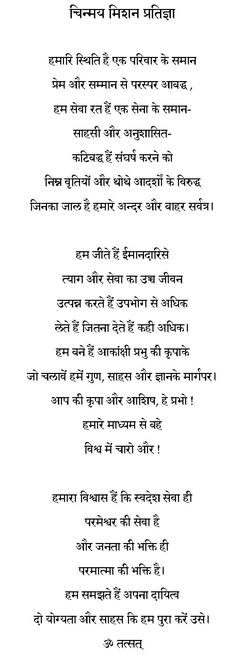 चिन्मय मिशन प्रतिज्ञा
हमारि स्थिति है एक परिवार के समान
प्रेम और सम्मान से परस्पर आबद्ध ,
हम सेवा रत हैं एक सेना के समान-
साहसी और अनुशासित-
कटिबद्ध हैं संघर्ष करने को
निम्न वृतियों और थोथे आदर्शों के विरुद्ध
जिनका जाल है हमारे अन्दर और बाहर सर्वत्र।
हम जीते हैं ईमानदारिसे
त्याग और सेवा का उच्च जीवन
उत्पन्न करते हैं उपभोग से अधिक
लेते हैं जितना देते हैं कही अधिक।
हम बने हैं आकांक्षी प्रभु की कृपाके
जो चलावें हमें गुण, साहस और ज्ञानके मार्गपर।
आप की कृपा और आशिष, हे प्रभो !
हमारे माध्यम से बहे
विश्व में चारो और !
हमारा विश्वास हैं कि स्वदेश सेवा ही
परमेश्वर की सेवा है
और जनता की भक्ति ही
परमात्मा की भक्ति है।
हम समझते हैं अपना दायित्व
दो योग्यता और साहस कि हम पुरा करें उसे।
ॐ तत्सत्